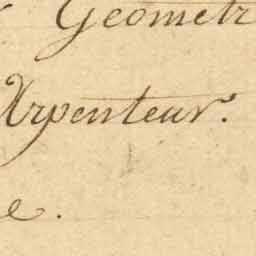 Geometr
Arpenteur.
e.